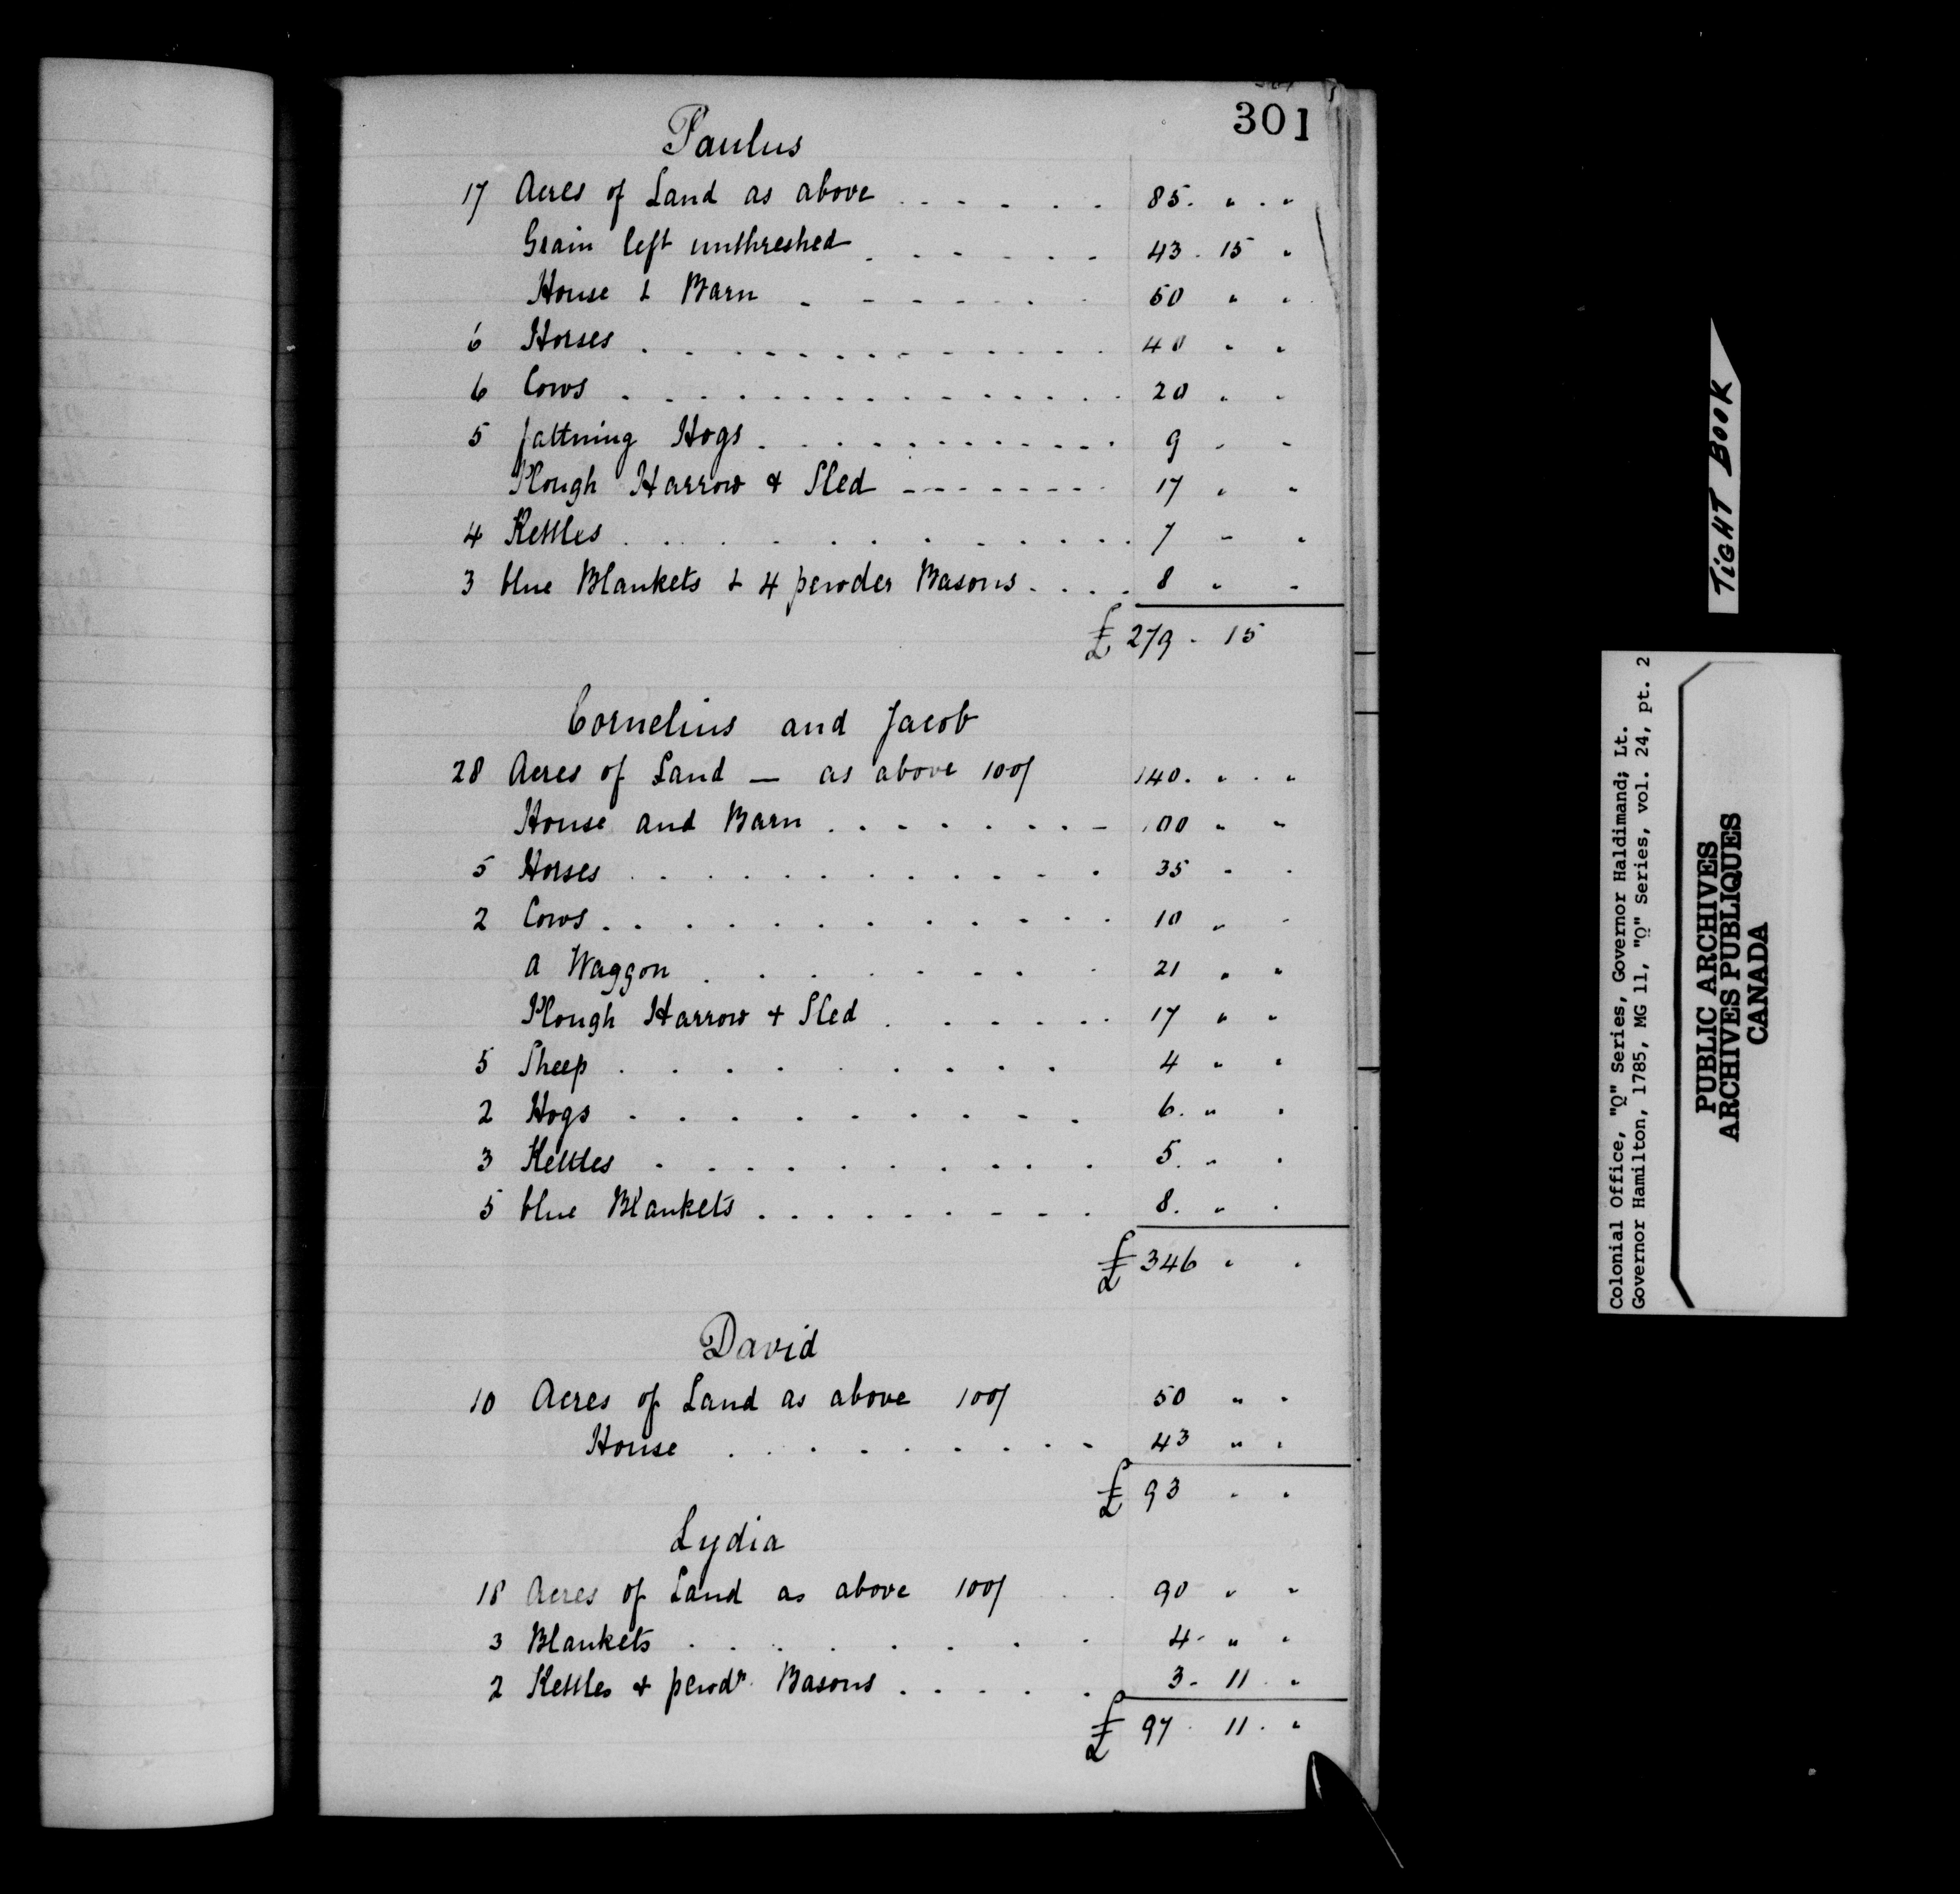 301
Paulus
17 Acres of Land as above . . . . . . 85. " . "
Grain left unthreshed . . . . . . 43 . 15 "
House & Barn . - - - - - - 50 " "
6 Horses . . . . . . . . . . . . 40 " "
6 Cows . . . . . . . . . . . . . 20 " "
5 fattning Hogs . . . . . . . . . . 9 " "
Plough Harrow & Sled - - - - - - - 17 " "
4 Kettles . . . . . . . . . . . . 7 " "
3 blue Blankets & 4 pewder Basons . . . . 8 " "
£ 279 . 15
Cornelius and Jacob
28 Acres of Land — as above 100/ 140. " . "
House and Barn . . . . . . . - 100 " "
5 Horses . . . . . . . . . . . 35 " "
2 Cows . . . . . . . . . . . . 10 " "
A Waggon . . . . . . . . 21 " "
Plough Harrow & Sled . . . . . . 17 " "
5 Sheep . . . . . . . . . . 4 " "
2 Hogs . . . . . . . . . . 6. " "
3 Kettles . . . . . . . . . . 5. " "
5 blue Blankets . . . . . . . . . 8. " "
£ 346 " "
David
10 Acres of Land as above 100/ 50 " "
House . . . . . . . . . . 43 " "
£ 93 " "
Lydia
18 Acres of Land as above 100/ 90 " "
3 Blankets . . . . . . . . . 4 - " "
2 Kettles & pewdr. Basons . . . . . 3 - 11 . "
£ 97 . 11 . "
TIGHT BOOK
Colonial Office, "Q" Series, Governor Haldimand; Lt.
Governor Hamilton, 1785, MG 11, "Q" Series, vol. 24, pt. 2
PUBLIC ARCHIVES
ARCHIVES PUBLIQUES
CANADA